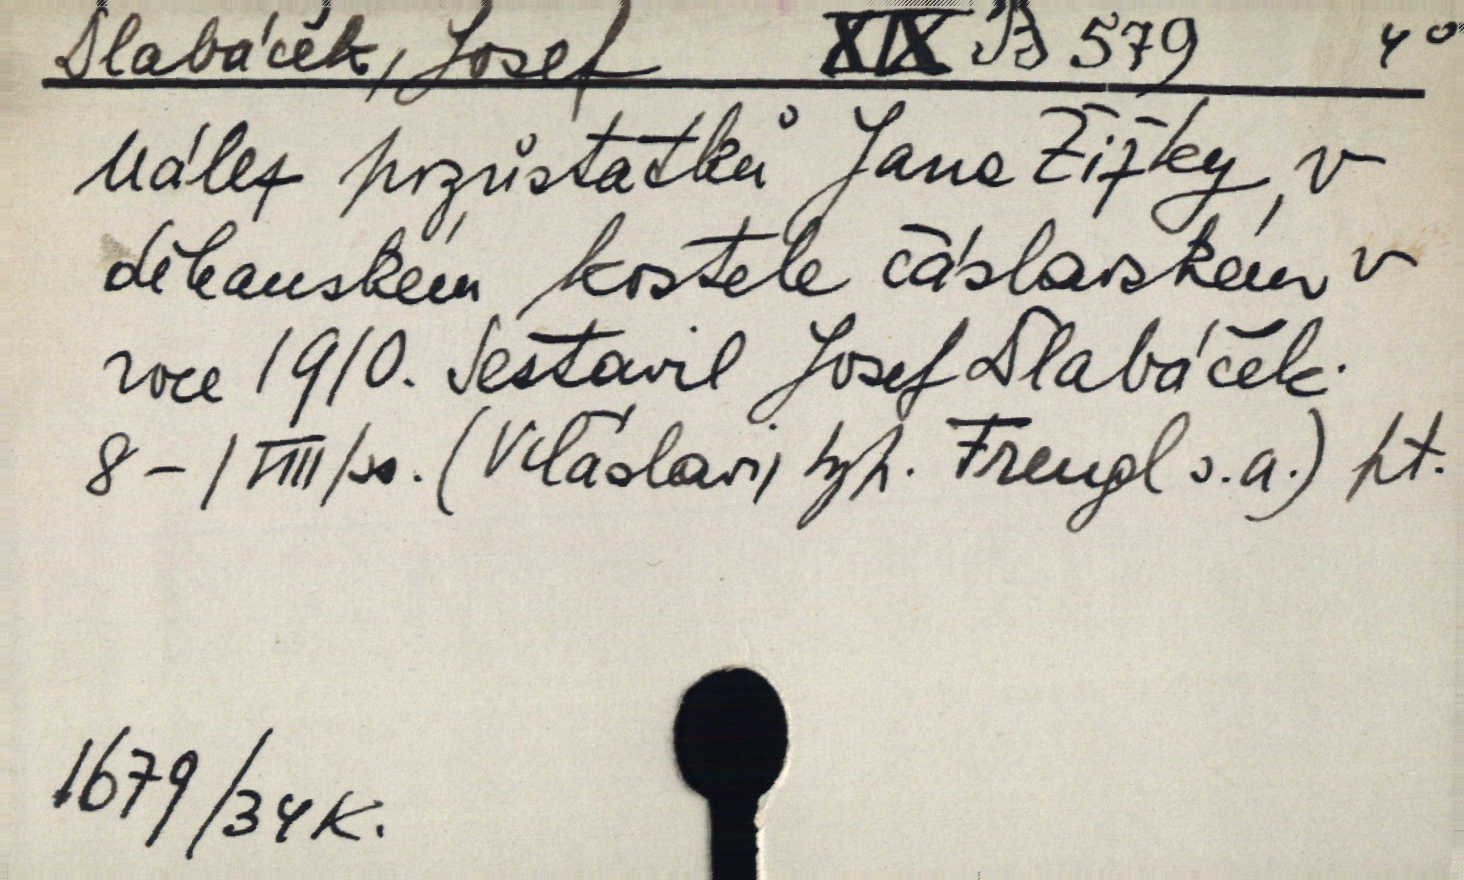 Dlabáček, Josef XIX B 579 4°
Nález pozůstatků Jana Žižky v
děkanském kostele čáslavském v
roce 1910. Sestavil Josef Dlabáček.
8 - /VIII/ ss. (V Čáslavi, typ. Frengl s.a.) pt.
1679/34 K.